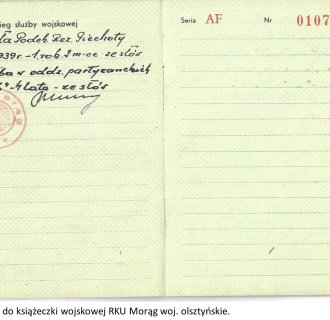 ieg służby wojskowej
ła Podch. Rez. Piechoty
939r - 1 rok 2 m-ce ze słów
ba w oddz. partyzanckich
4 lata - ze słów
Seria AF Nr 0107
do książeczki wojskowej RKU Morąg woj. olsztyńskie.